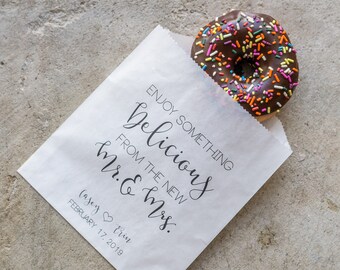 ENJOY SOMETHING
Delicious
FROM THE NEW
Mr. & Mrs.
Casey ♡ Erin
FEBRUARY 17, 2019